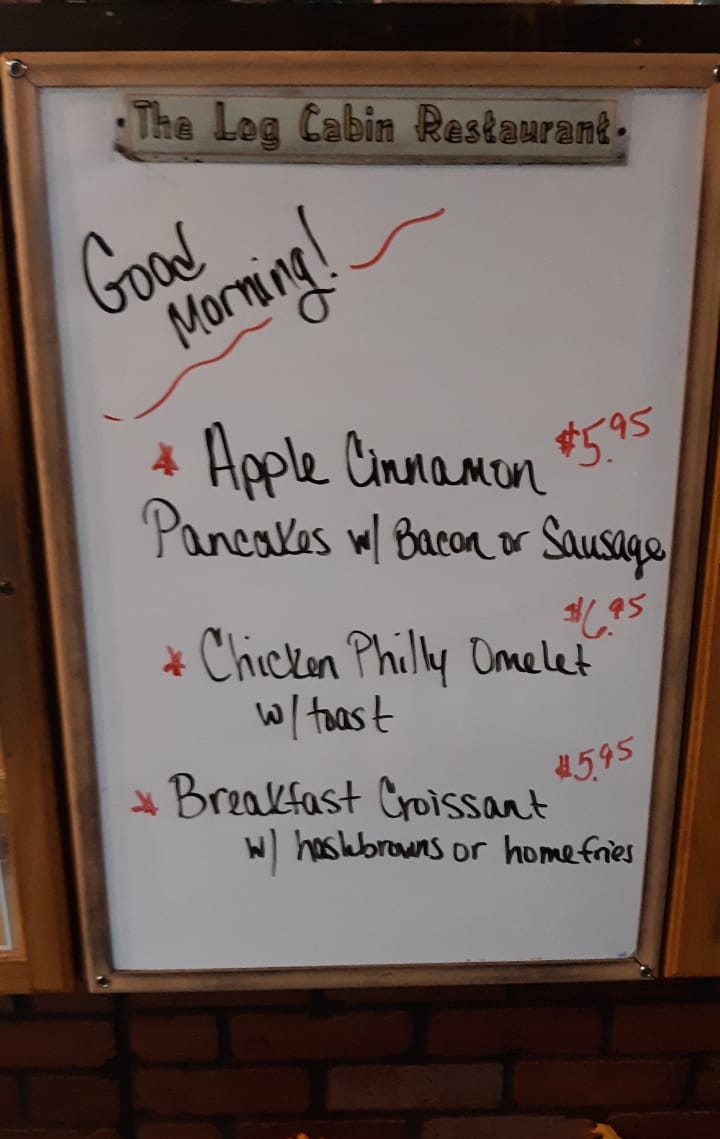 ·The Log Cabin Restaurant·
Good
Morning!
* Apple Cinnamon $5.95
Pancakes w/ Bacon or Sausage
$6.95
* Chicken Philly Omelet
w/ toast
$5.95
* Breakfast Croissant
w/ hashbrowns or homefries